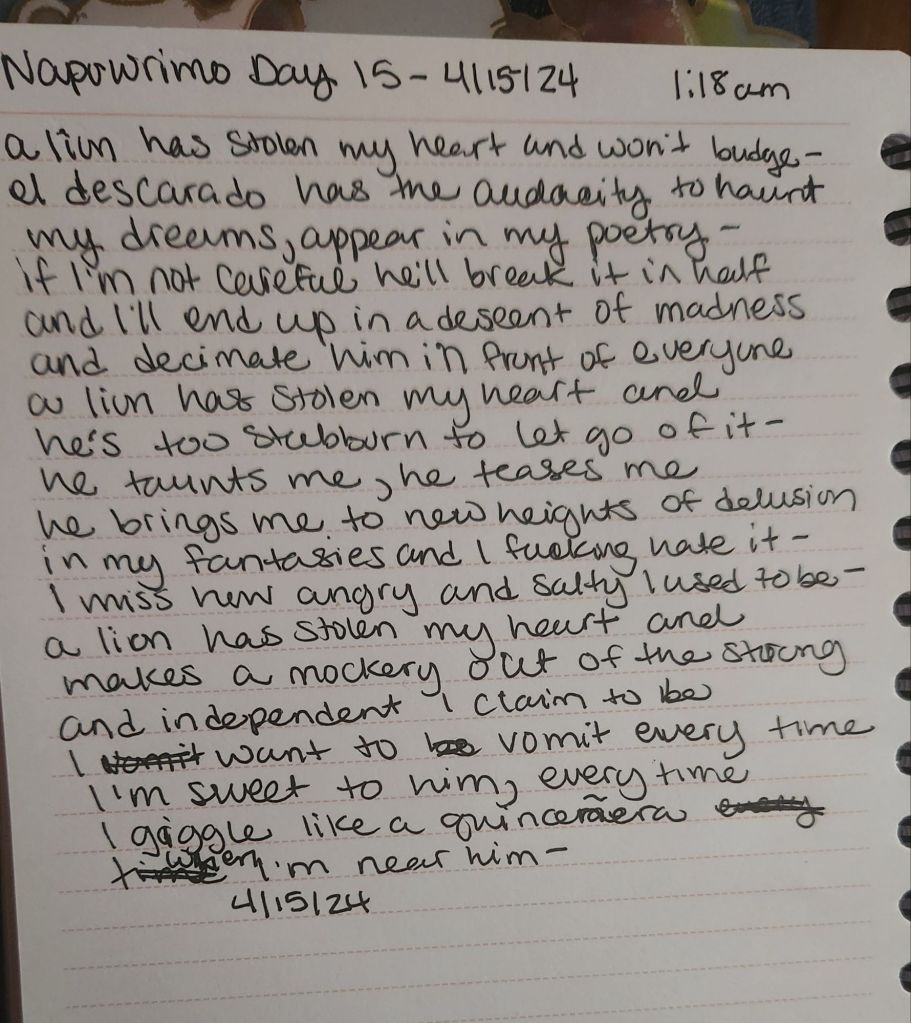 Napowrimo Day 15 - 4/15/24 1:18 am
a lion has stolen my heart and won't budge -
el descarado has the audacity to haunt
my dreams, appear in my poetry -
if I'm not careful he'll break it in half
and I'll end up in a descent of madness
and decimate him in front of everyone
a lion has stolen my heart and
he's too stubborn to let go of it -
he taunts me, he teases me
he brings me to new heights of delusion
in my fantasies and I fucking hate it -
I miss how angry and salty I used to be -
a lion has stolen my heart and
makes a mockery out of the strong
and independent I claim to be
I vomit want to be vomit every time
I'm sweet to him, every time
I giggle like a quinceñera every
time when I'm near him -
4/15/24